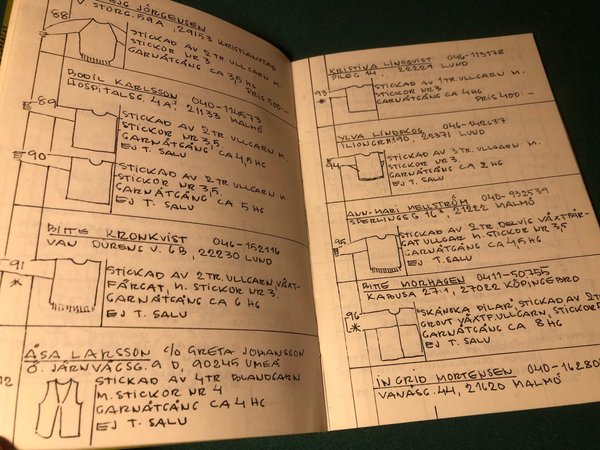 JÖRGENSEN
V. STORG. 59A, 29153 KRISTIANSTAD
88
STICKAD AV 2 TR. ULLGARN M.
STICKOR NR 3
GARNÅTGÅNG CA 3,5 HG
PRIS 500:-
BODIL KARLSSON 040-114573
HOSPITALSG. 4A, 21133 MALMÖ
89
STICKAD AV 2 TR. ULLGARN M.
STICKOR NR 3,5
GARNÅTGÅNG CA 4,5 HG
EJ T. SALU
90
STICKAD AV 2 TR. ULLGARN M.
STICKOR NR 3,5.
GARNÅTGÅNG CA 5 HG
EJ T. SALU
BITTE KRONKVIST 046-152116
VAN DURENS V. 6B, 22230 LUND
91
*
STICKAD AV 2 TR. ULLGARN VÄXT-
FÄRGAT, M. STICKOR NR 3
GARNÅTGÅNG CA 6 HG
EJ T. SALU
ÅSA LARSSON C/O GRETA JOHANSSON
Ö. JÄRNVÄGSG. 9 D, 90245 UMEÅ
STICKAD AV 4 TR. POLANDGARN
M. STICKOR NR 4
GARNÅTGÅNG CA 4 HG
EJ T. SALU
KRISTINA LINDQVIST 046-113178
PILEG. 14, 22229 LUND
93
*
STICKAD AV 1 TR. ULLGARN M.
STICKOR NR 3
GARNÅTGÅNG CA 4 HG
PRIS 400:-
YLVA LINDSKOG
22371 LUND
94
STICKAD AV 3 TR. ULLGARN M.
STICKOR NR 3.
GARNÅTGÅNG CA 2 HG
EJ T. SALU
ANN-MARI MELLSTRÖM 040-932539
SPERLINGSG. 16, 21222 MALMÖ
95
STICKAD AV 2 TR. DELVIS VÄXTFÄR-
GAT ULLGAR M. STICKOR NR 3,5
GARNÅTGÅNG CA 4,5 HG
EJ T. SALU
BITTE MORHAGEN 0411-50755
KABUSA 27:1, 27022 KÖPINGEBRO
96
*
"SKÅNSKA PILAR", STICKAD AV 2 TR
GROVT VÄXTF. ULLGARN, STICKOR
GARNÅTGÅNG CA 8 HG
EJ T. SALU
INGRID MORTENSEN 040-16280
VANÅSG. 44, 21620 MALMÖ